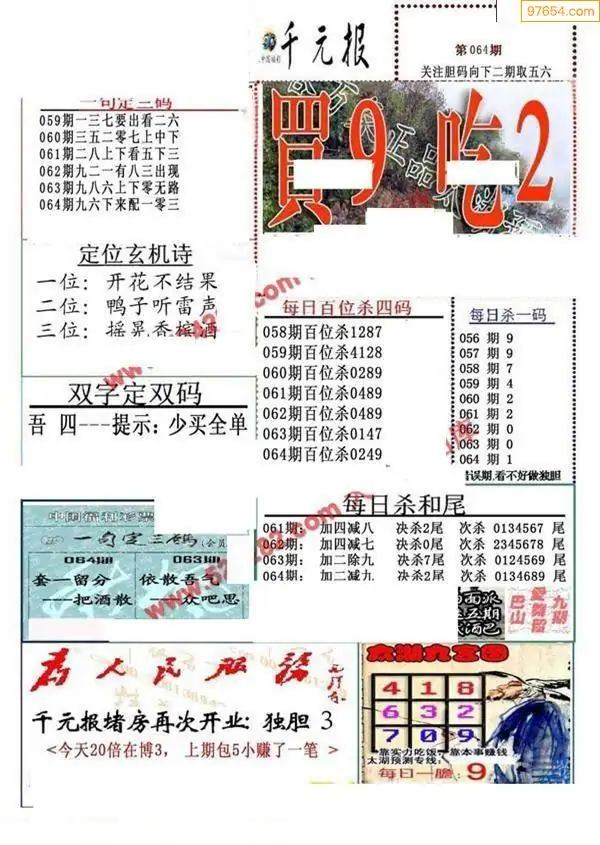 97654.com
千元报
第064期
关注胆码向下二期取五六
買9 吃2
一句定三码
059期一三七要出看二六
060期三五二零七上中下
061期二八上下看五下三
062期九二一有八三出现
063期九八六上下零无路
064期九六下来配一零三
定位玄机诗
一位: 开花不结果
二位: 鸭子听雷声
三位: 摇晃香槟酒
双字定双码
吾 四---提示: 少买全单
每日百位杀四码
058期百位杀1287
059期百位杀4128
060期百位杀0289
061期百位杀0489
062期百位杀0489
063期百位杀0147
064期百位杀0249
每日杀一码
056 期 9
057 期 9
058 期 7
059 期 4
060 期 2
061 期 2
062 期 0
063 期 0
064 期 1
错误期,看不好做独胆
每日杀和尾
061期: 加四减八 决杀2尾 次杀 0134567 尾
062期: 加四减七 决杀0尾 次杀 2345678 尾
063期: 加二除九 决杀7尾 次杀 0124569 尾
064期: 加二减九 决杀2尾 次杀 0134689 尾
中国福利彩票
一句定三码
064期 063期
套—留分 依散吾气
——把酒散 ——众吧思
九期
巴山
为人民服务
千元报堵房再次开业: 独胆 3
<今天20倍在博3, 上期包5小赚了一笔>
太湖九宫图
4 1 8
6 3 2
7 0 9
靠实力吃饭,靠本事赚钱
太湖预测专线:
每日一胆 9